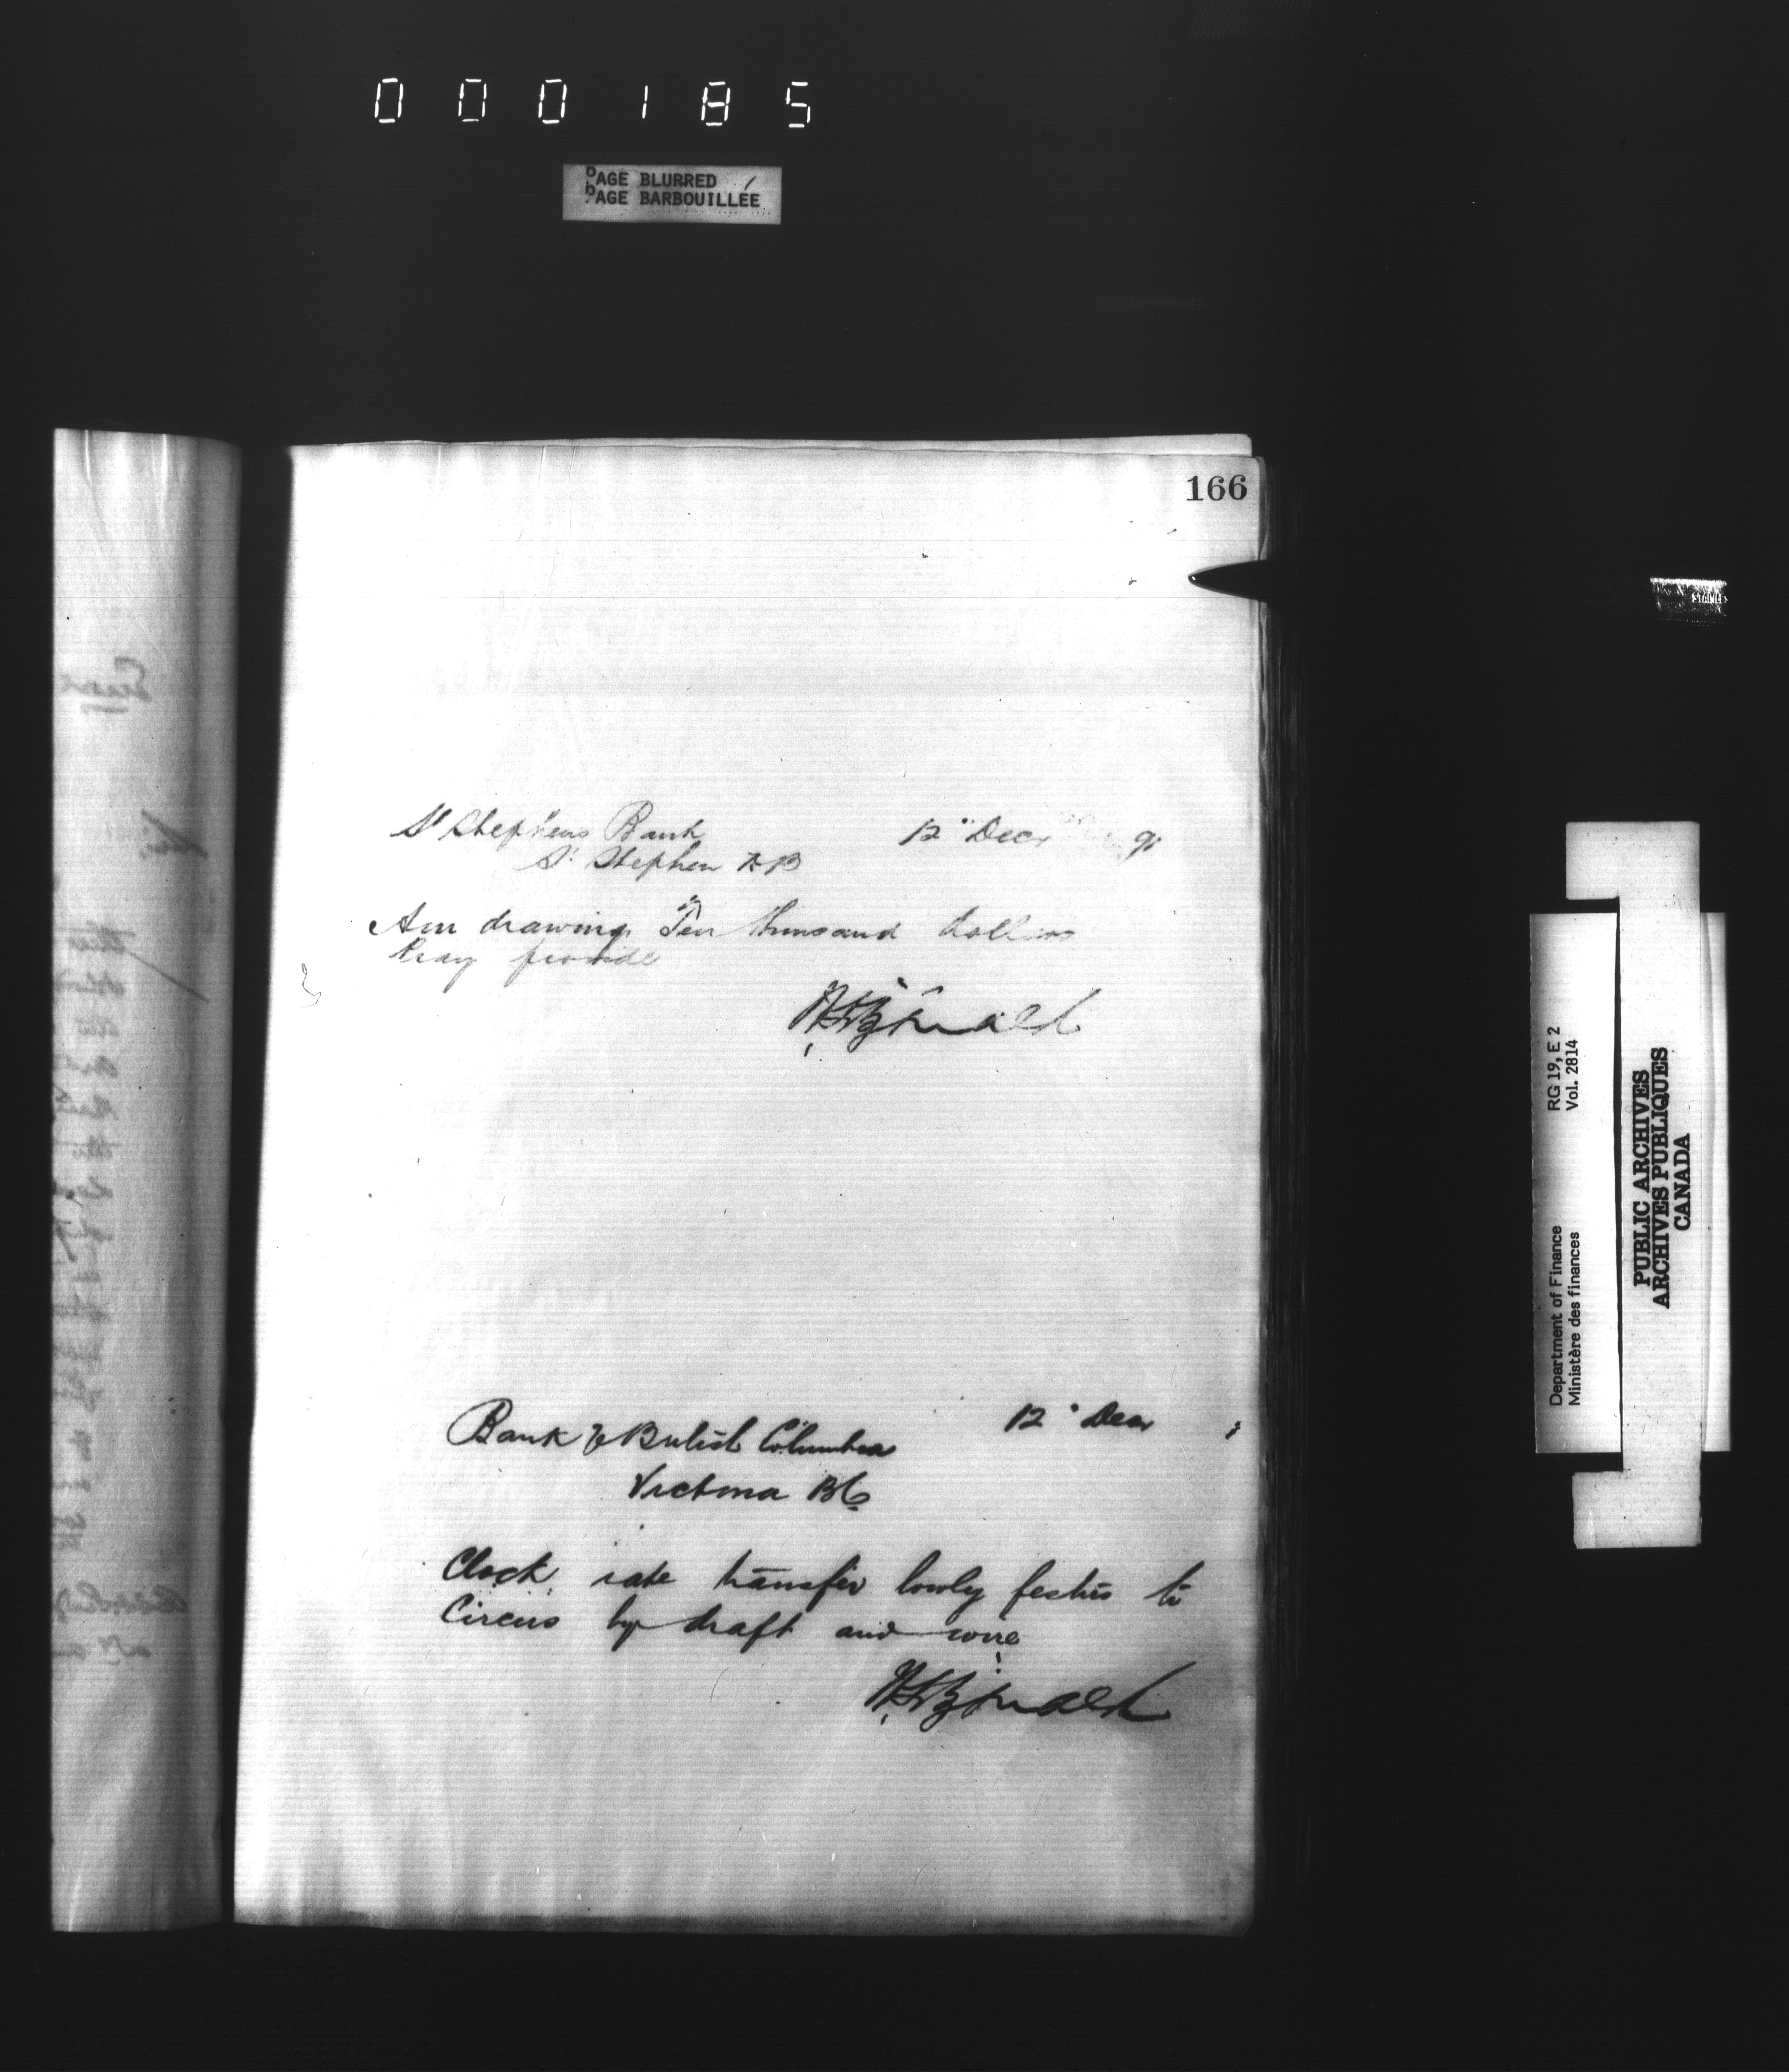 000185
PAGE BLURRED
PAGE BARBOUILLÉE
166
St Stephens Bank 12" Decr 9
St Stephen NB
Am drawing Ten thousand dollars
Pray provide
Bank of British Columbia 12" Decr
Victoria BC
Clock rate transfer lowly festus to
Circus by draft and wire
Department of Finance RG 19, E 2
Ministère des finances Vol. 2814
PUBLIC ARCHIVES
ARCHIVES PUBLIQUES
CANADA